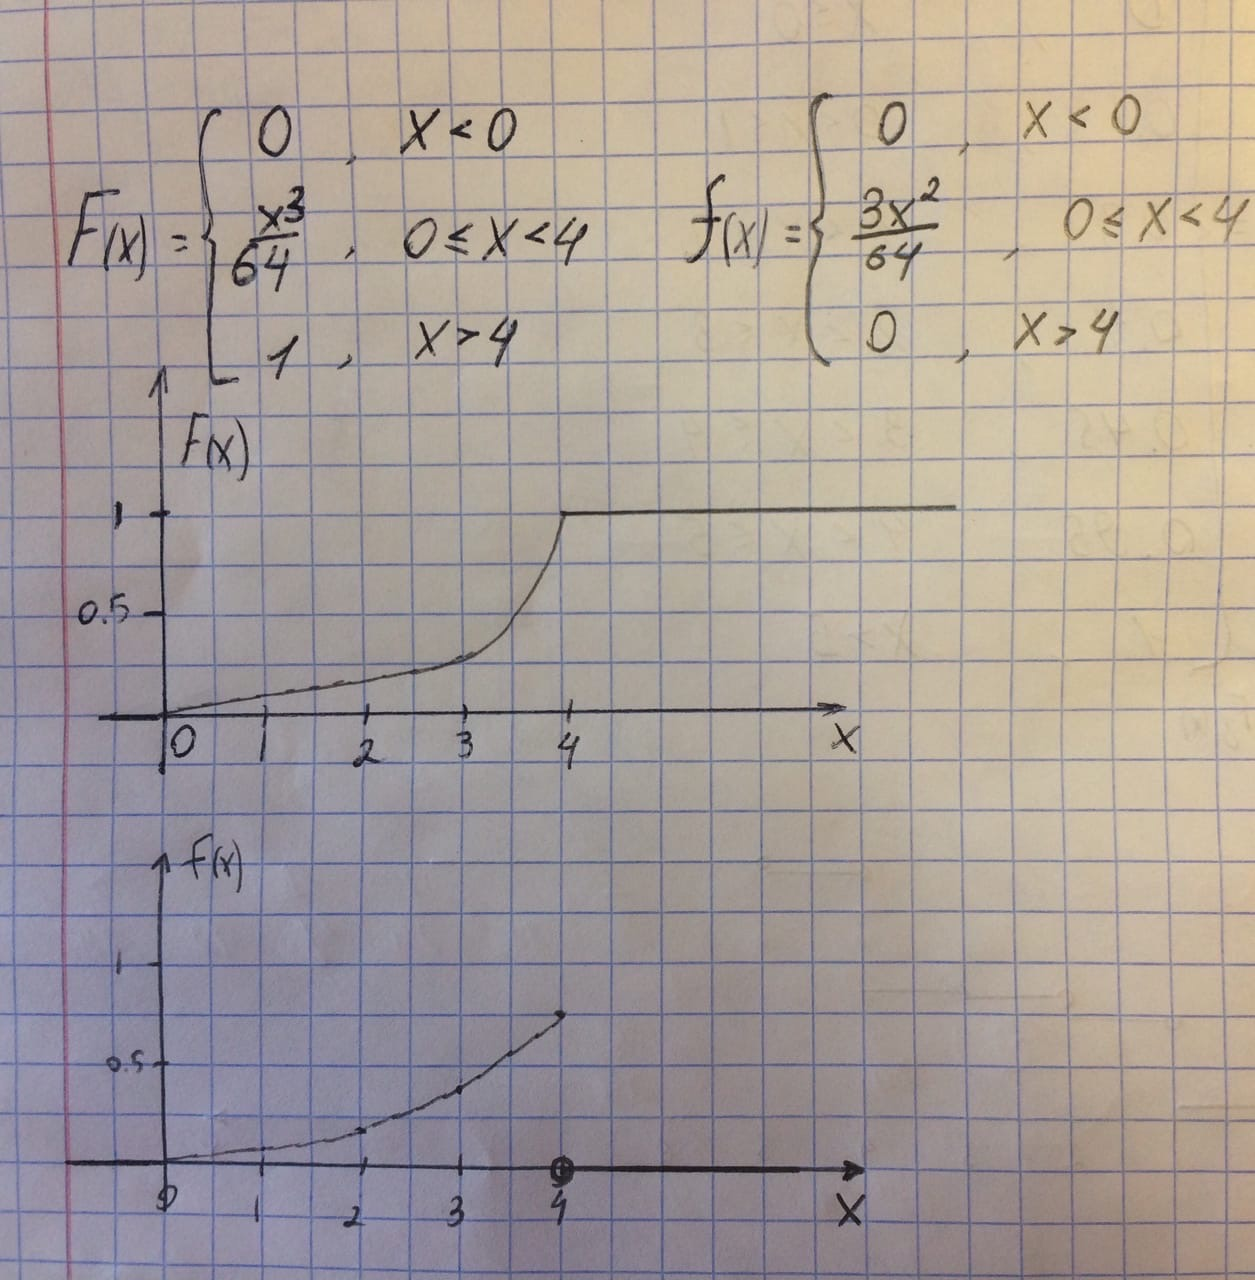 0 , x < 0
F(x) = x³/64 , 0 ≤ x < 4
1 , x > 4
0 , x < 0
f(x) = 3x²/64 , 0 ≤ x < 4
0 , x > 4
F(x)
1
0.5
0 1 2 3 4 x
f(x)
1
0.5
0 1 2 3 4 x